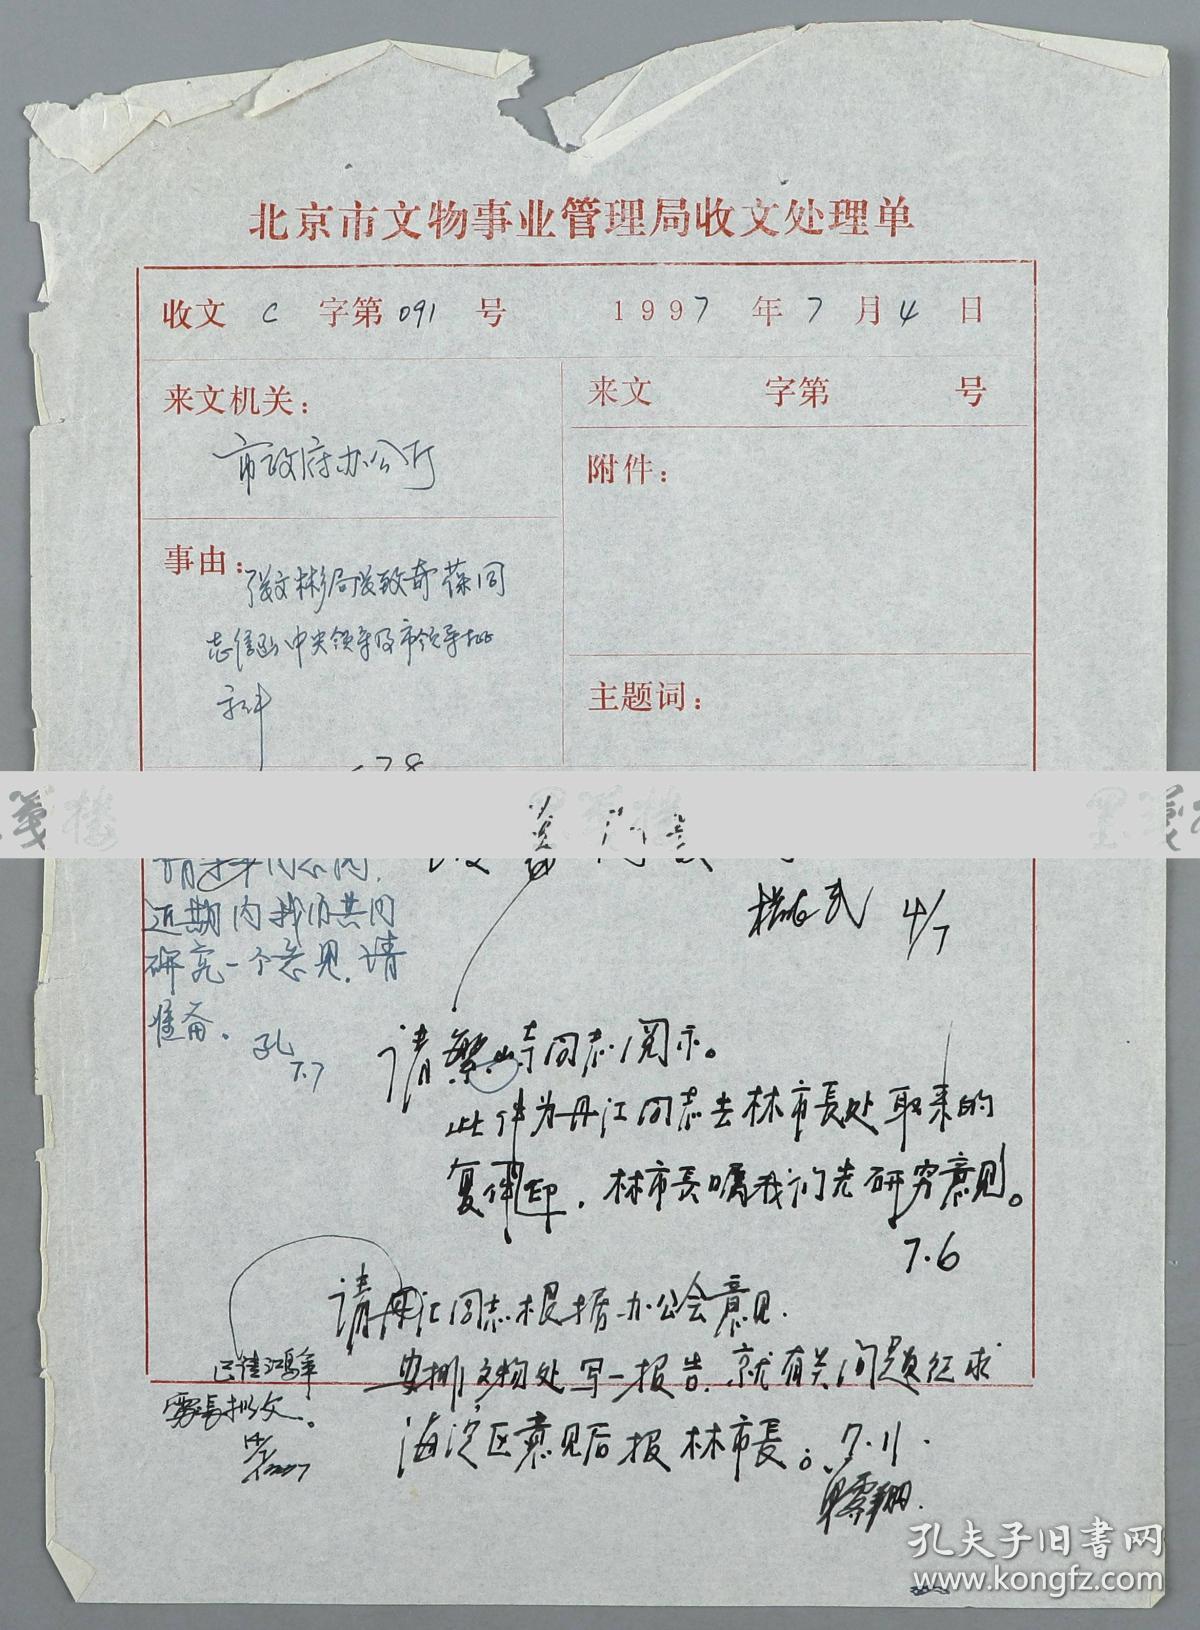 北京市文物事业管理局收文处理单
收文 C 字第 091 号 1997 年 7 月 4 日
来文机关：
市政府办公厅
来文 字第 号
附件：
事由：
张文彬局长致奇葆同
志信函中央领导及市领导批
主题词：
近期内我们共同
研究一个意见，请
准备。
孔 7.7
4/7
请繁峙同志阅示。
此件为丹江同志去林市长处取来的
复印件，林市长嘱我们先研究意见。
7.6
请丹江同志根据办公会意见，
安排文物处写一报告，就有关问题征求
海淀区意见后报林市长。7.11.
孔夫子旧书网
www.kongfz.com